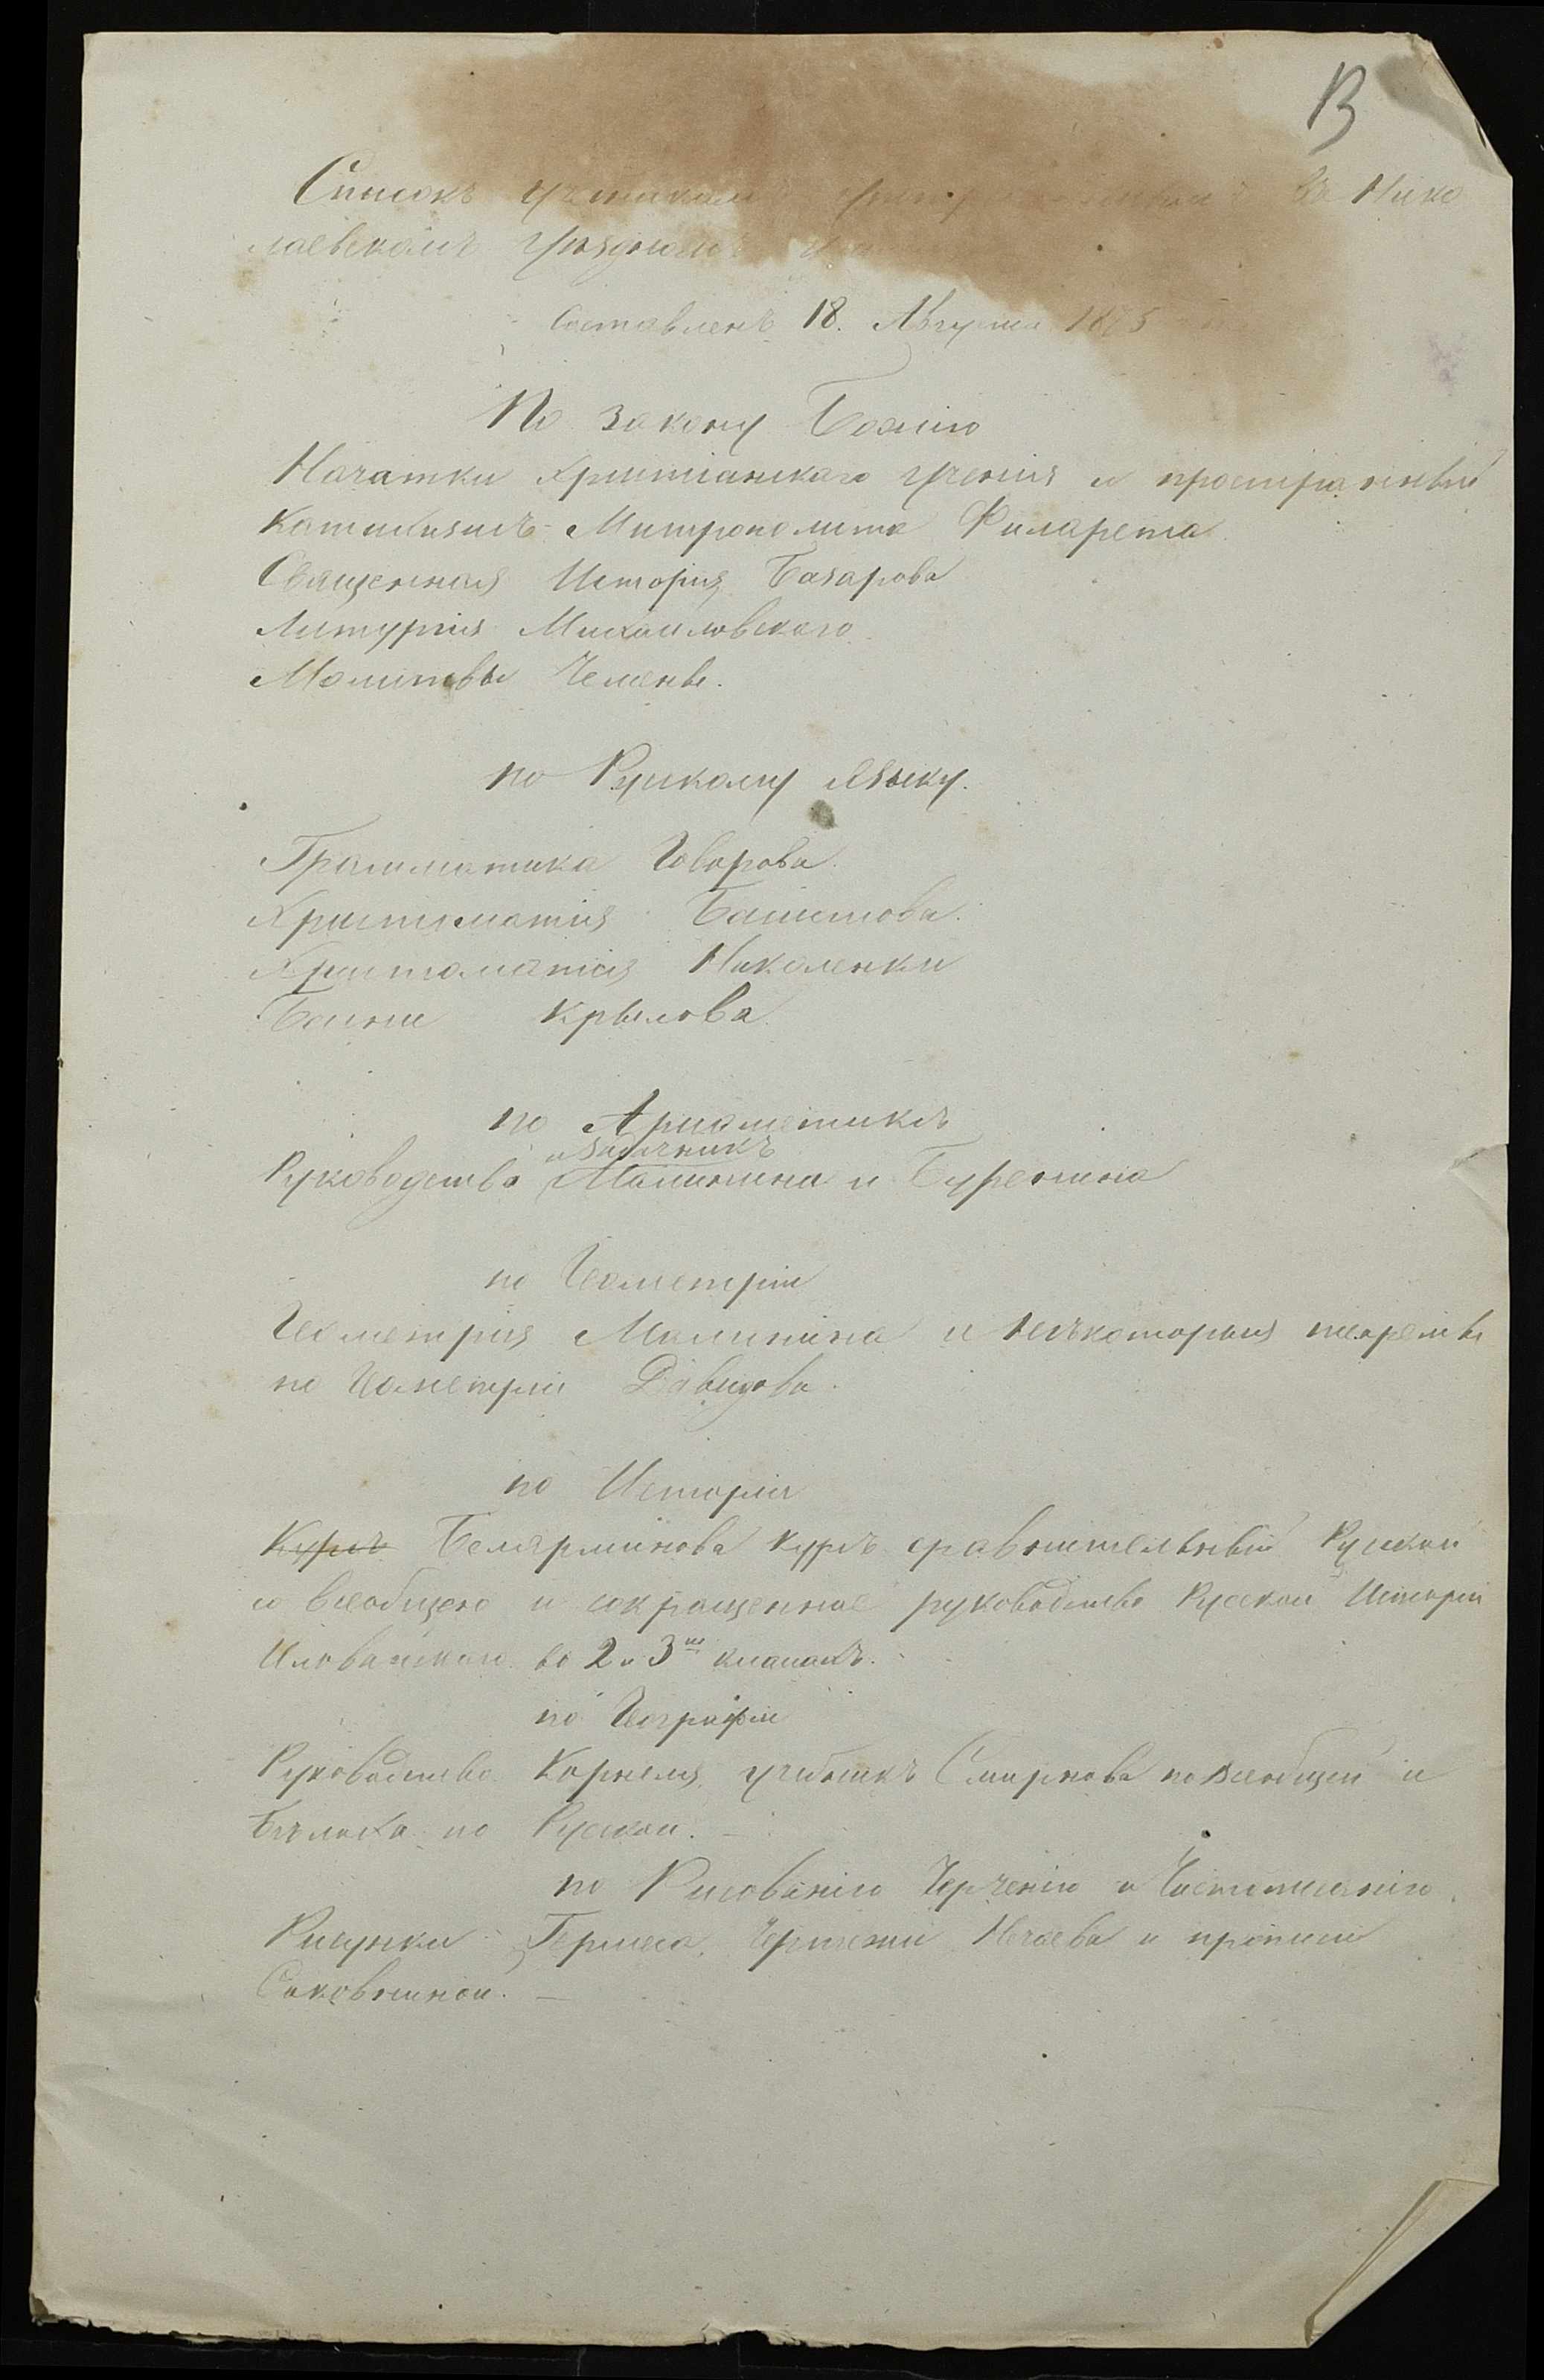 13
Списокъ учебниковъ въ Нико
лаевскомъ Уѣздномъ
Составленъ 18. Августа 1875
По закону Божію
Начатки Христіанскаго ученія и пространный
Катихизисъ Митрополита Филарета
Священная Исторія Базарова
Литургія Михаиловскаго
Молитвы Чемены.
по Рускому языку.
Грамматика Говорова.
Христоматія Басистова.
Христоматія Николенки
Басни Крылова.
по Ариѳметикѣ
и Задачникъ
Руководство Малинина и Буренина
по Геометріи
Геометрія Малинина и нѣкоторыя теоремы
по Геометріи Давидова.
по Исторіи
Курсъ Белярминова курсъ сравнительный Руской
со всеобщею и сокращенное руководство Русской Исторіи
Иловайскаго во 2 и 3мъ класахъ.
по Географіи
Руководство Корнеля, учебникъ Смирнова по всеобщей и
Бѣлоха по Русской. —
по Рисованію Черченію и Чистописанію.
Рисунки Гермеса, Чертежи Нечаева и прописи
Саковниной. —